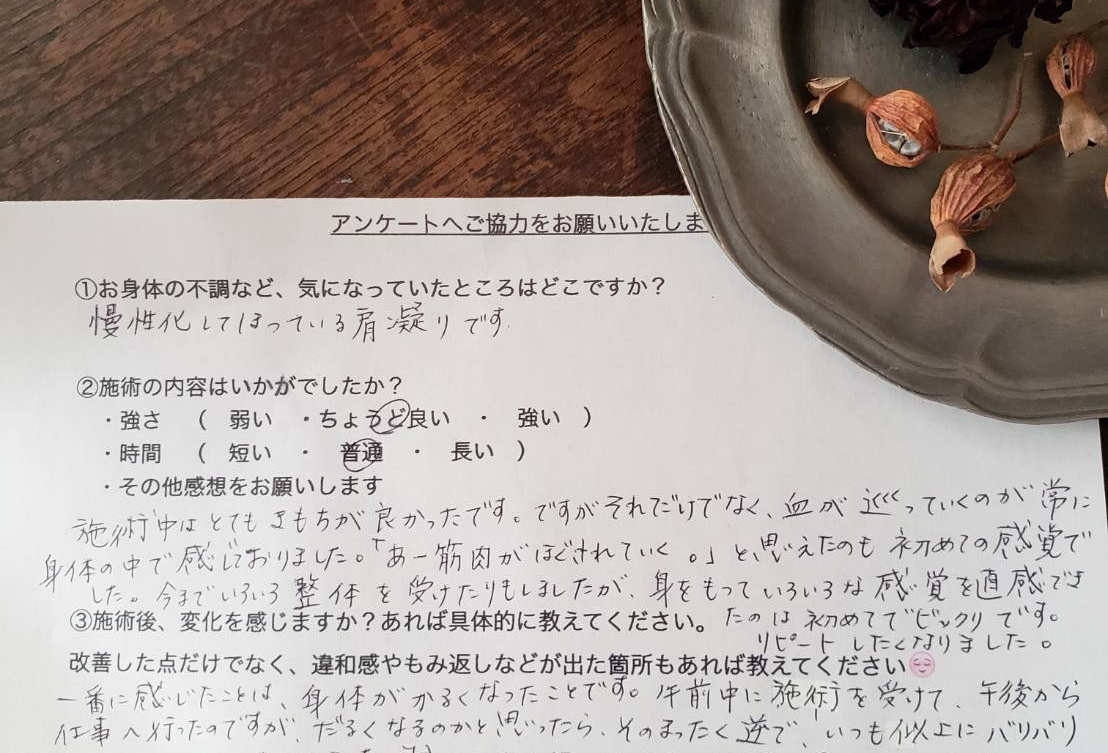 アンケートへご協力をお願いいたしま
①お身体の不調など、気になっていたところはどこですか？
慢性化してしまっている肩凝りです.
②施術の内容はいかがでしたか？
・強さ （ 弱い ・ちょうど良い ・ 強い ）
・時間 （ 短い ・ 普通 ・ 長い ）
・その他感想をお願いします
施術中はとてもきもちが良かったです。ですがそれだけでなく、血が巡っていくのが常に
身体の中で感じておりました。「あー筋肉がほぐされていく。」と思えたのも初めての感覚で
した。今までいろいろ整体を受けたりもしましたが、身をもっていろいろな感覚を直感でき
③施術後、変化を感じますか？あれば具体的に教えてください。
たのは初めてでビックリです。
リピートしたくなりました。
改善した点だけでなく、違和感やもみ返しなどが出た箇所もあれば教えてください
一番に感じたことは、身体がかるくなったことです。午前中に施術を受けて、午後から
仕事へ行ったのですが、だるくなるのかと思ったら、そのまったく逆で、いつも以上にバリバリ